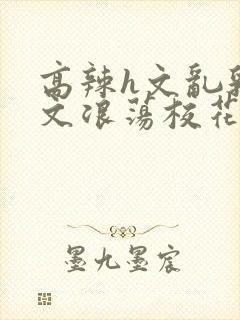 高辣h文乱
文浪荡校花
墨九墨宸